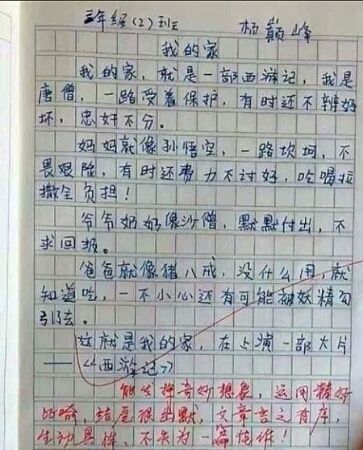 三年级(2)班 杨巅峰
我的家
我的家,就是一部西游记,我是
唐僧,一路受着保护,有时还不辨好
坏,忠奸不分。
妈妈就像孙悟空,一路坎坷,不
畏艰险,有时还费力不讨好,吃喝拉
撒全负担!
爷爷奶奶像沙僧,默默付出,不
求回报。
爸爸就像猪八戒,没什么用,就
知道吃,一不小心还有可能被妖精勾
引去。
这就是我的家,在上演一部大片
——《西游记》
能发挥奇妙想象,运用精妙
比喻,结尾很幽默,文章言之有序,
生动具体,不失为一篇佳作!